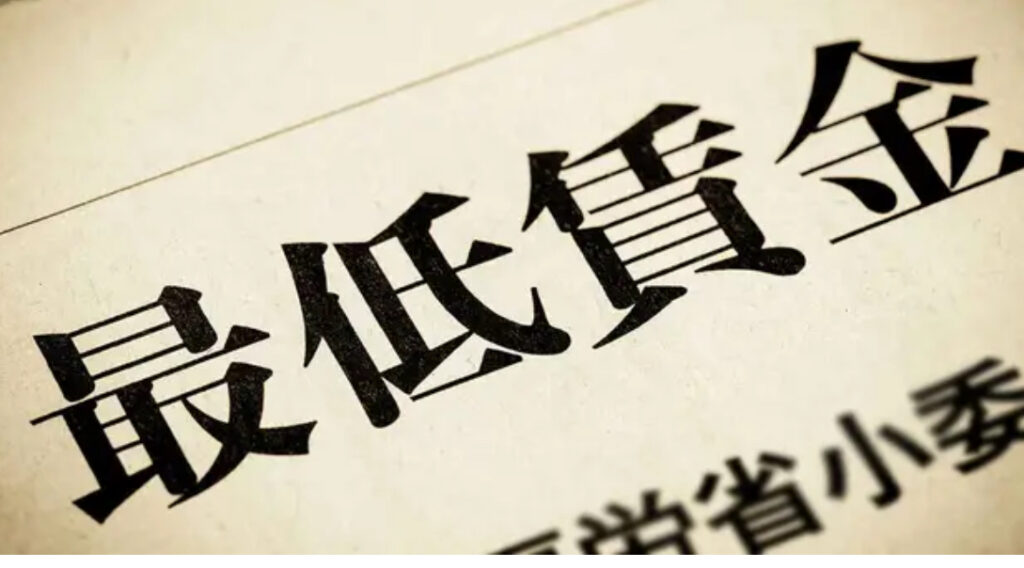 最低賃金
労省小委